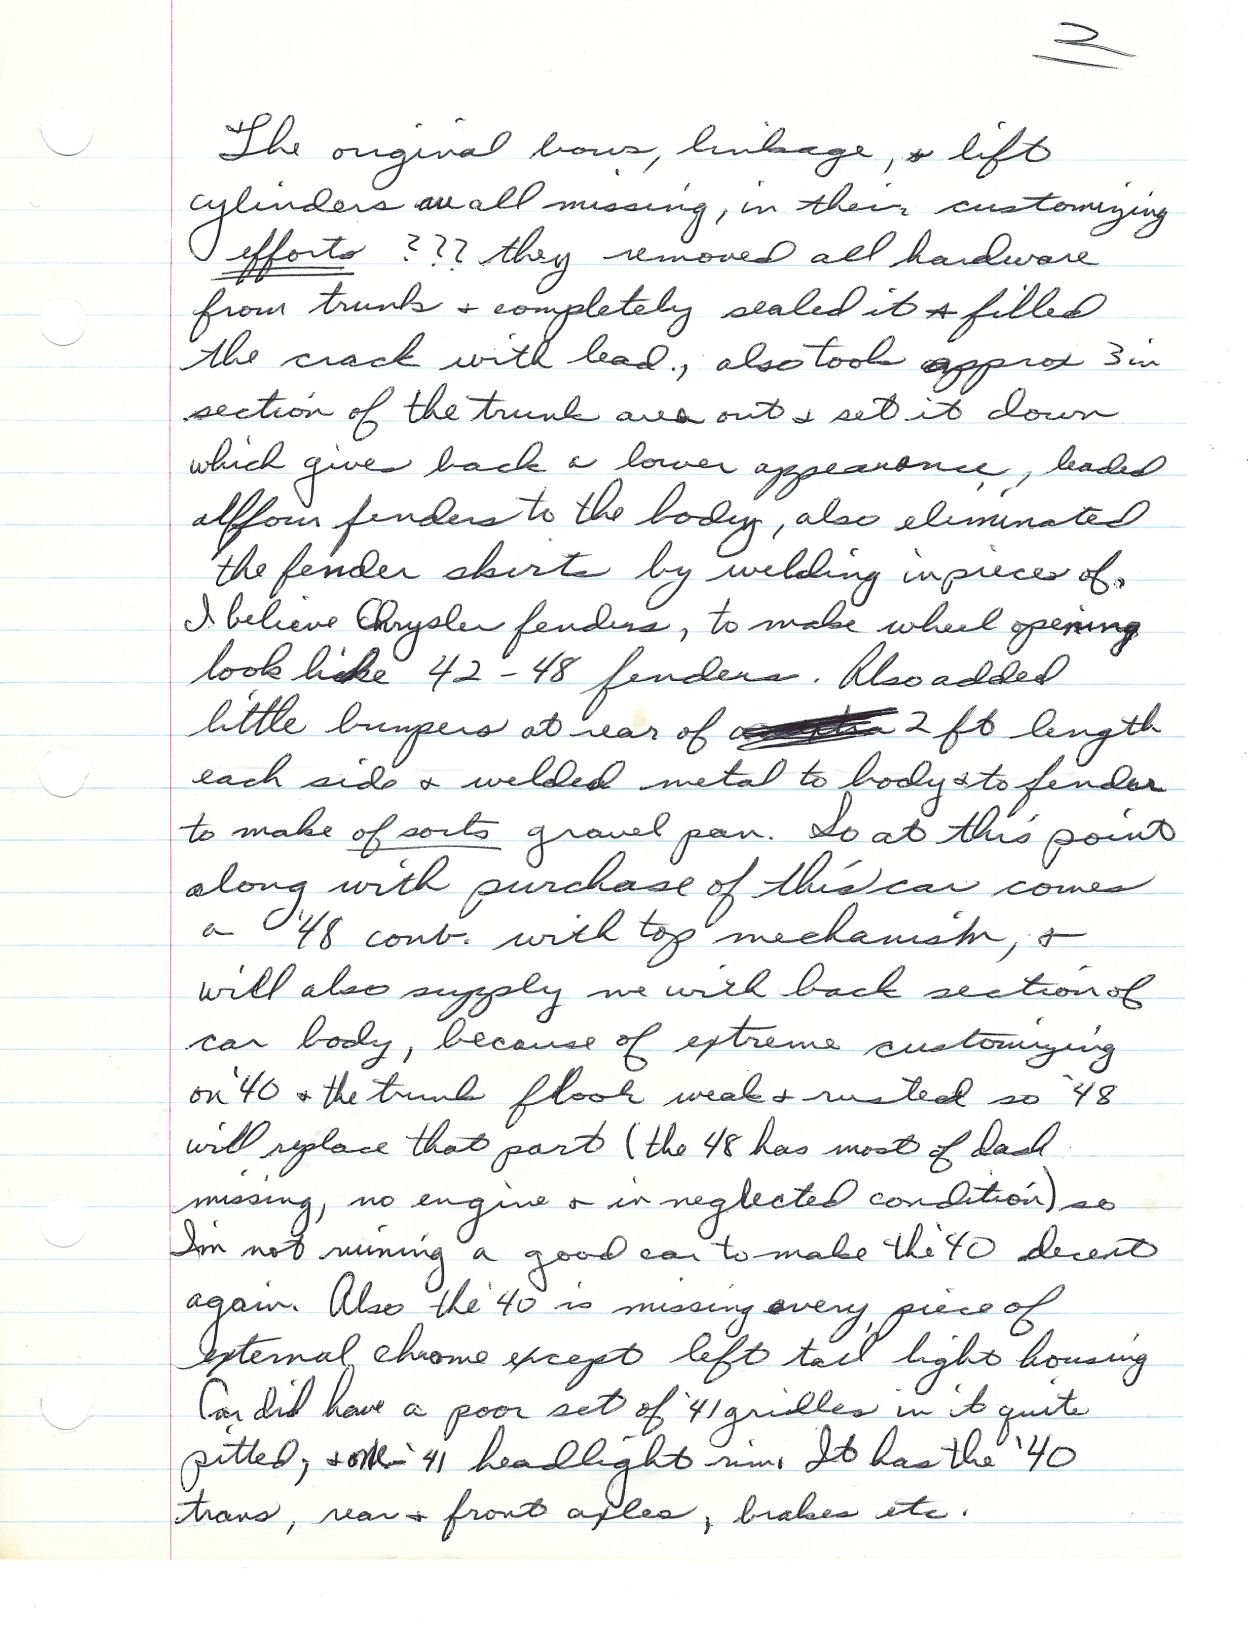 2
The original bows, linkage, & lift
cylinders are all missing, in their customizing
efforts ??? they removed all hardware
from trunk & completely sealed it & filled
the crack with lead., also took approx 3 in
section of the trunk area out & set it down
which gives back a lower appearance, leaded
all four fenders to the body, also eliminated
the fender skirts by welding in pieces of,
I believe Chrysler fenders, to make wheel opening
look like 42-48 fenders. Also added
little bumpers at rear of 2 ft length
each side & welded metal to body & to fender
to make of sorts gravel pan. So at this point
along with purchase of this car comes
a '48 conv. with top mechanism, &
will also supply me with back section of
car body, because of extreme customizing
on '40 & the trunk floor weak & rusted so '48
will replace that part (the 48 has most of dash
missing, no engine & in neglected condition) so
I'm not ruining a good car to make the '40 decent
again. Also the '40 is missing every piece of
external chrome except left tail light housing
Car did have a poor set of '41 grilles in it quite
pitted, & one '41 headlight rim. It has the '40
trans, rear & front axles, brakes etc.